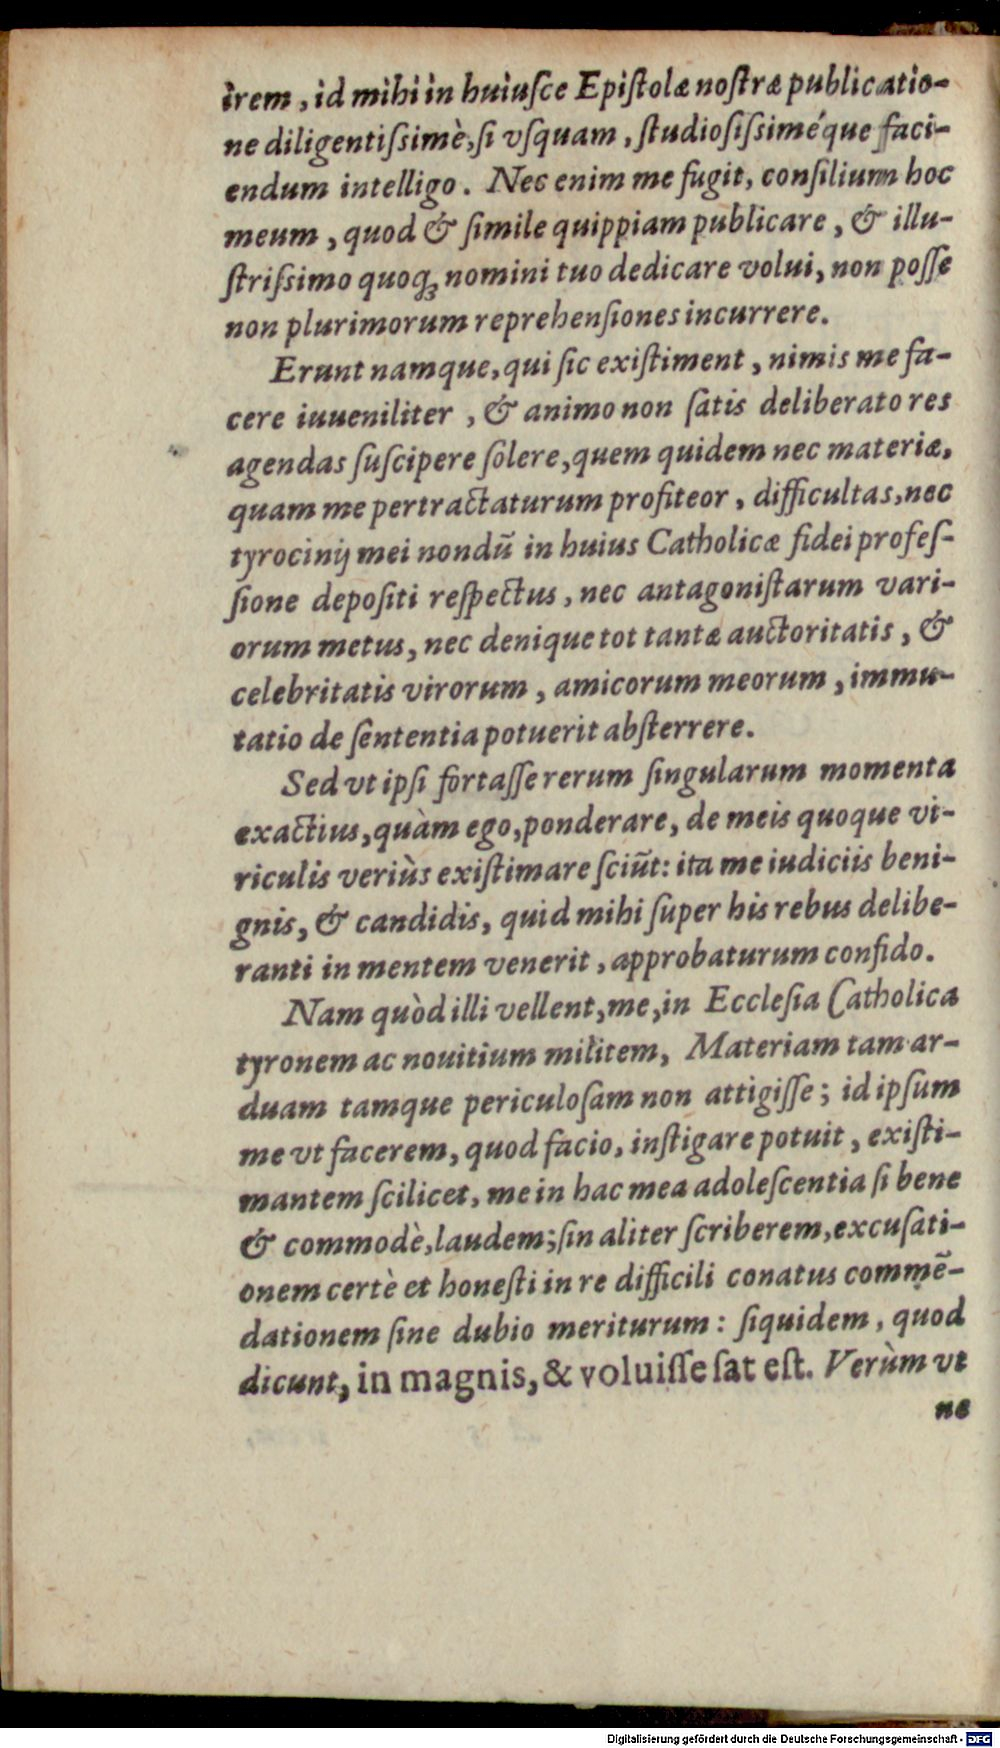 irem, id mihi in huiusce Epiſtolæ noſtræ publicatio-
ne diligentiſsimè, ſi vſquam, ſtudioſiſsiméque faci-
endum intelligo. Nec enim me fugit, conſilium hoc
meum, quod & ſimile quippiam publicare, & illu-
ſtriſsimo quoqꝫ nomini tuo dedicare volui, non poſſe
non plurimorum reprehenſiones incurrere.
Erunt namque, qui ſic exiſtiment, nimis me fa-
cere iuueniliter, & animo non ſatis deliberato res
agendas ſuſcipere ſolere, quem quidem nec materiæ,
quam me pertractaturum profiteor, difficultas, nec
tyrocinij mei nondū in huius Catholicæ fidei profeſ-
ſione depoſiti reſpectus, nec antagoniſtarum vari-
orum metus, nec denique tot tantæ auctoritatis, &
celebritatis virorum, amicorum meorum, immu-
tatio de ſententia potuerit abſterrere.
Sed vt ipſi fortaſſe rerum ſingularum momenta
exactius, quàm ego, ponderare, de meis quoque vi-
riculis veriùs exiſtimare ſciūt: ita me iudiciis beni-
gnis, & candidis, quid mihi ſuper his rebus delibe-
ranti in mentem venerit, approbaturum confido.
Nam quòd illi vellent, me, in Eccleſia Catholica
tyronem ac nouitium militem, Materiam tam ar-
duam tamque periculoſam non attigiſſe; id ipſum
me vt facerem, quod facio, inſtigare potuit, exiſti-
mantem ſcilicet, me in hac mea adoleſcentia ſi bene
& commodè, laudem; ſin aliter ſcriberem, excuſati-
onem certè et honeſti in re difficili conatus commē-
dationem ſine dubio meriturum: ſiquidem, quod
dicunt, in magnis, & voluiſſe ſat eſt. Verùm vt
ne
Digitalisierung gefördert durch die Deutsche Forschungsgemeinschaft - DFG